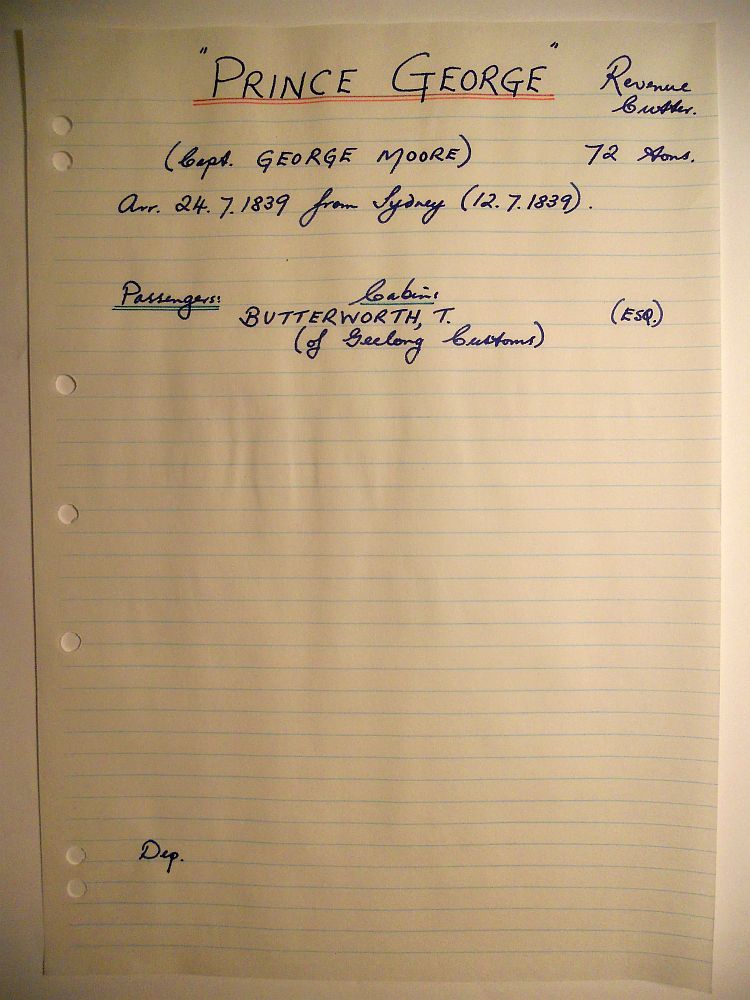 "PRINCE GEORGE" Revenue
Cutter.
(Capt. GEORGE MOORE) 72 tons.
Arr. 24.7.1839 from Sydney (12.7.1839).
Passengers: Cabin:
BUTTERWORTH, T. (ESQ.)
(of Geelong Customs)
Dep.